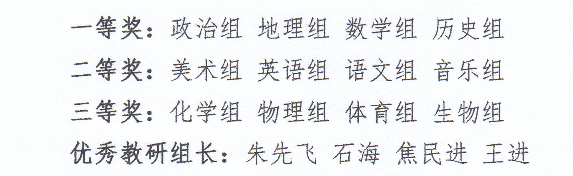 一等奖：政治组 地理组 数学组 历史组
二等奖：美术组 英语组 语文组 音乐组
三等奖：化学组 物理组 体育组 生物组
优秀教研组长：朱先飞 石海 焦民进 王进